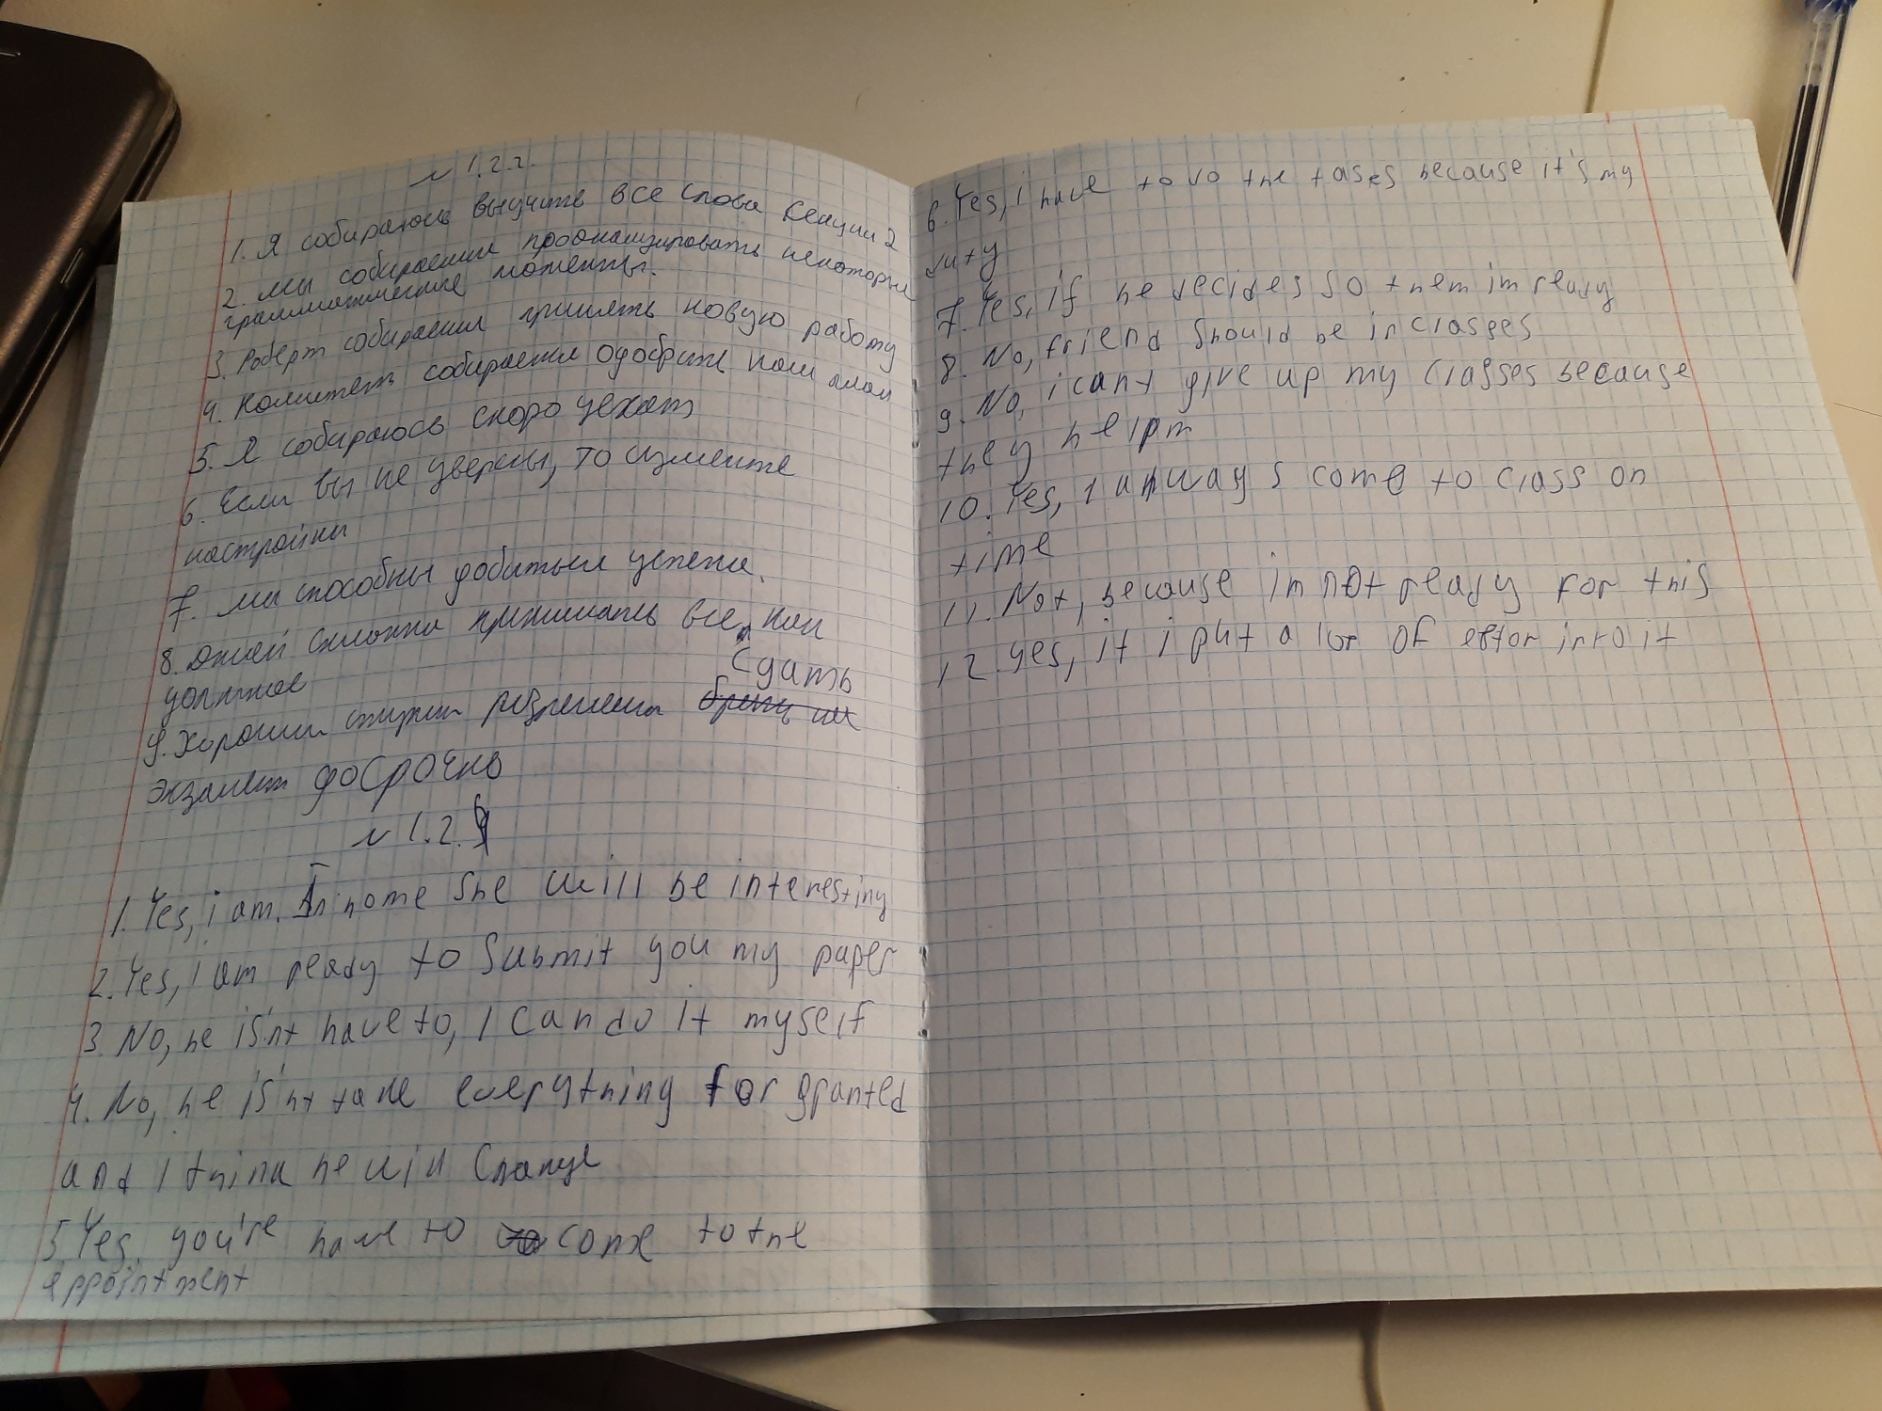 N 1.2.2.
1. Я собираюсь выучить все слова лекции 2
2. Мы собираемся проанализировать некоторые
грамматические моменты.
3 Роберт собираеш принять новую работу
4. Комитет собирается одобрить
5. Я собираюсь скоро уехат
6. Если вы не уверены, то измените
настройки
7. Мы способны добиться успеха.
8. Джейн склонна принимать все
9. Хорошим студентам разрешают сдать
экзамен досрочно
N 1.2.8
1. Yes, i am. I hope she will be interesting
2. Yes, I am ready to submit you my paper
3 No, he isnt have to, I can do it myself
4. No, he isn't take everything for granted
and I think he will change
5 Yes you're have to come to the
appointment
6. Yes, i have to do the tases because it's my
duty
7. Yes, if he decides so them im ready
8. No, friend should be in classes
9. No, i cant give up my classes because
they help m
10. Yes, I always come to class on
time
11. Not, because im not ready for this
12 yes, it i put a lot of effor into it